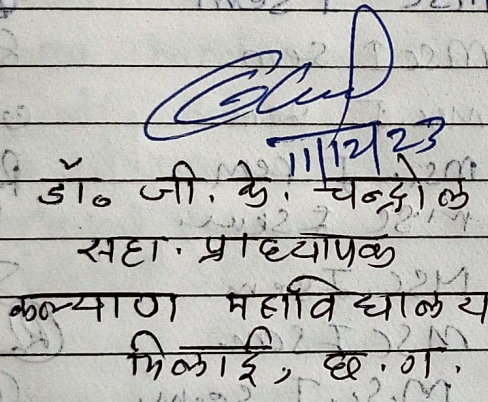 11/12/23
डॉ॰ जी. के. चन्द्रोल
सहा. प्राध्यापक
कल्याण महाविद्यालय
भिलाई, छ.ग.